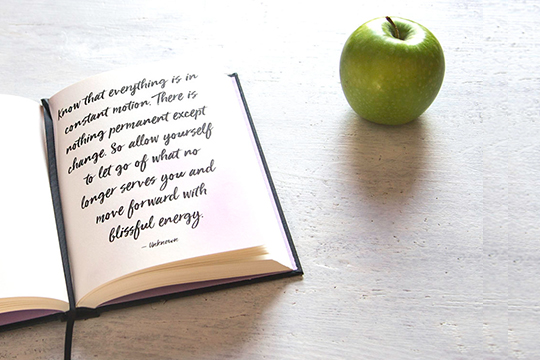 Know that everything is in
constant motion. There is
nothing permanent except
change. So allow yourself
to let go of what no
longer serves you and
move forward with
blissful energy.
— Unknown